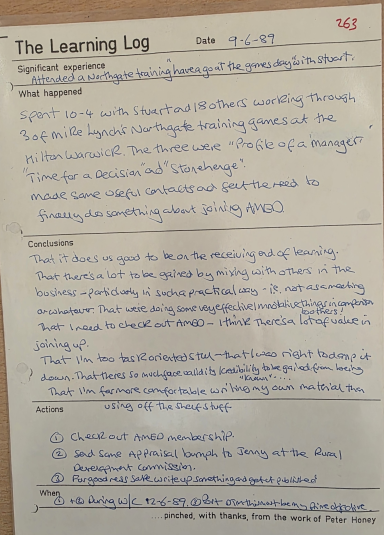 263
The Learning Log
Date 9-6-89
Significant experience
Attended a Northgate training "have a go at the games day" with Stuart.
What happened
Spent 10-4 with Stuart and 18 others working through
3 of Mike Lynch's Northgate training games at the
Hilton Warwick. The three were "Profile of a manager"
"Time for a Decision" ad "Stonehenge".
made some useful contacts and feel the need to
finally do something about joining AMED.
Conclusions
That it does us good to be on the receiving end of learning.
That there's a lot to be gained by mixing with others in the
business - particularly in such a practical way - ie. not as a meeting
or whatever. That were doing some very effective/innovative things in comparison
to others!
That I need to check out AMED - I think there's a lot of value in
joining up.
That I'm too task oriented still - that I was right to damp it
down. That theres so much face validity/credibility to be gained from being
"known"....
That I'm far more comfortable writing my own material than
using off the shelf stuff
Actions
① Check out AMED membership.
② Send same Appraisal bumph to Jenny at the Rural
Development Commission.
③ For goodness sake write up something and get it published
When
① + ② During W/C 12-6-89. ③ But this must be my prime objective.
....pinched, with thanks, from the work of Peter Honey